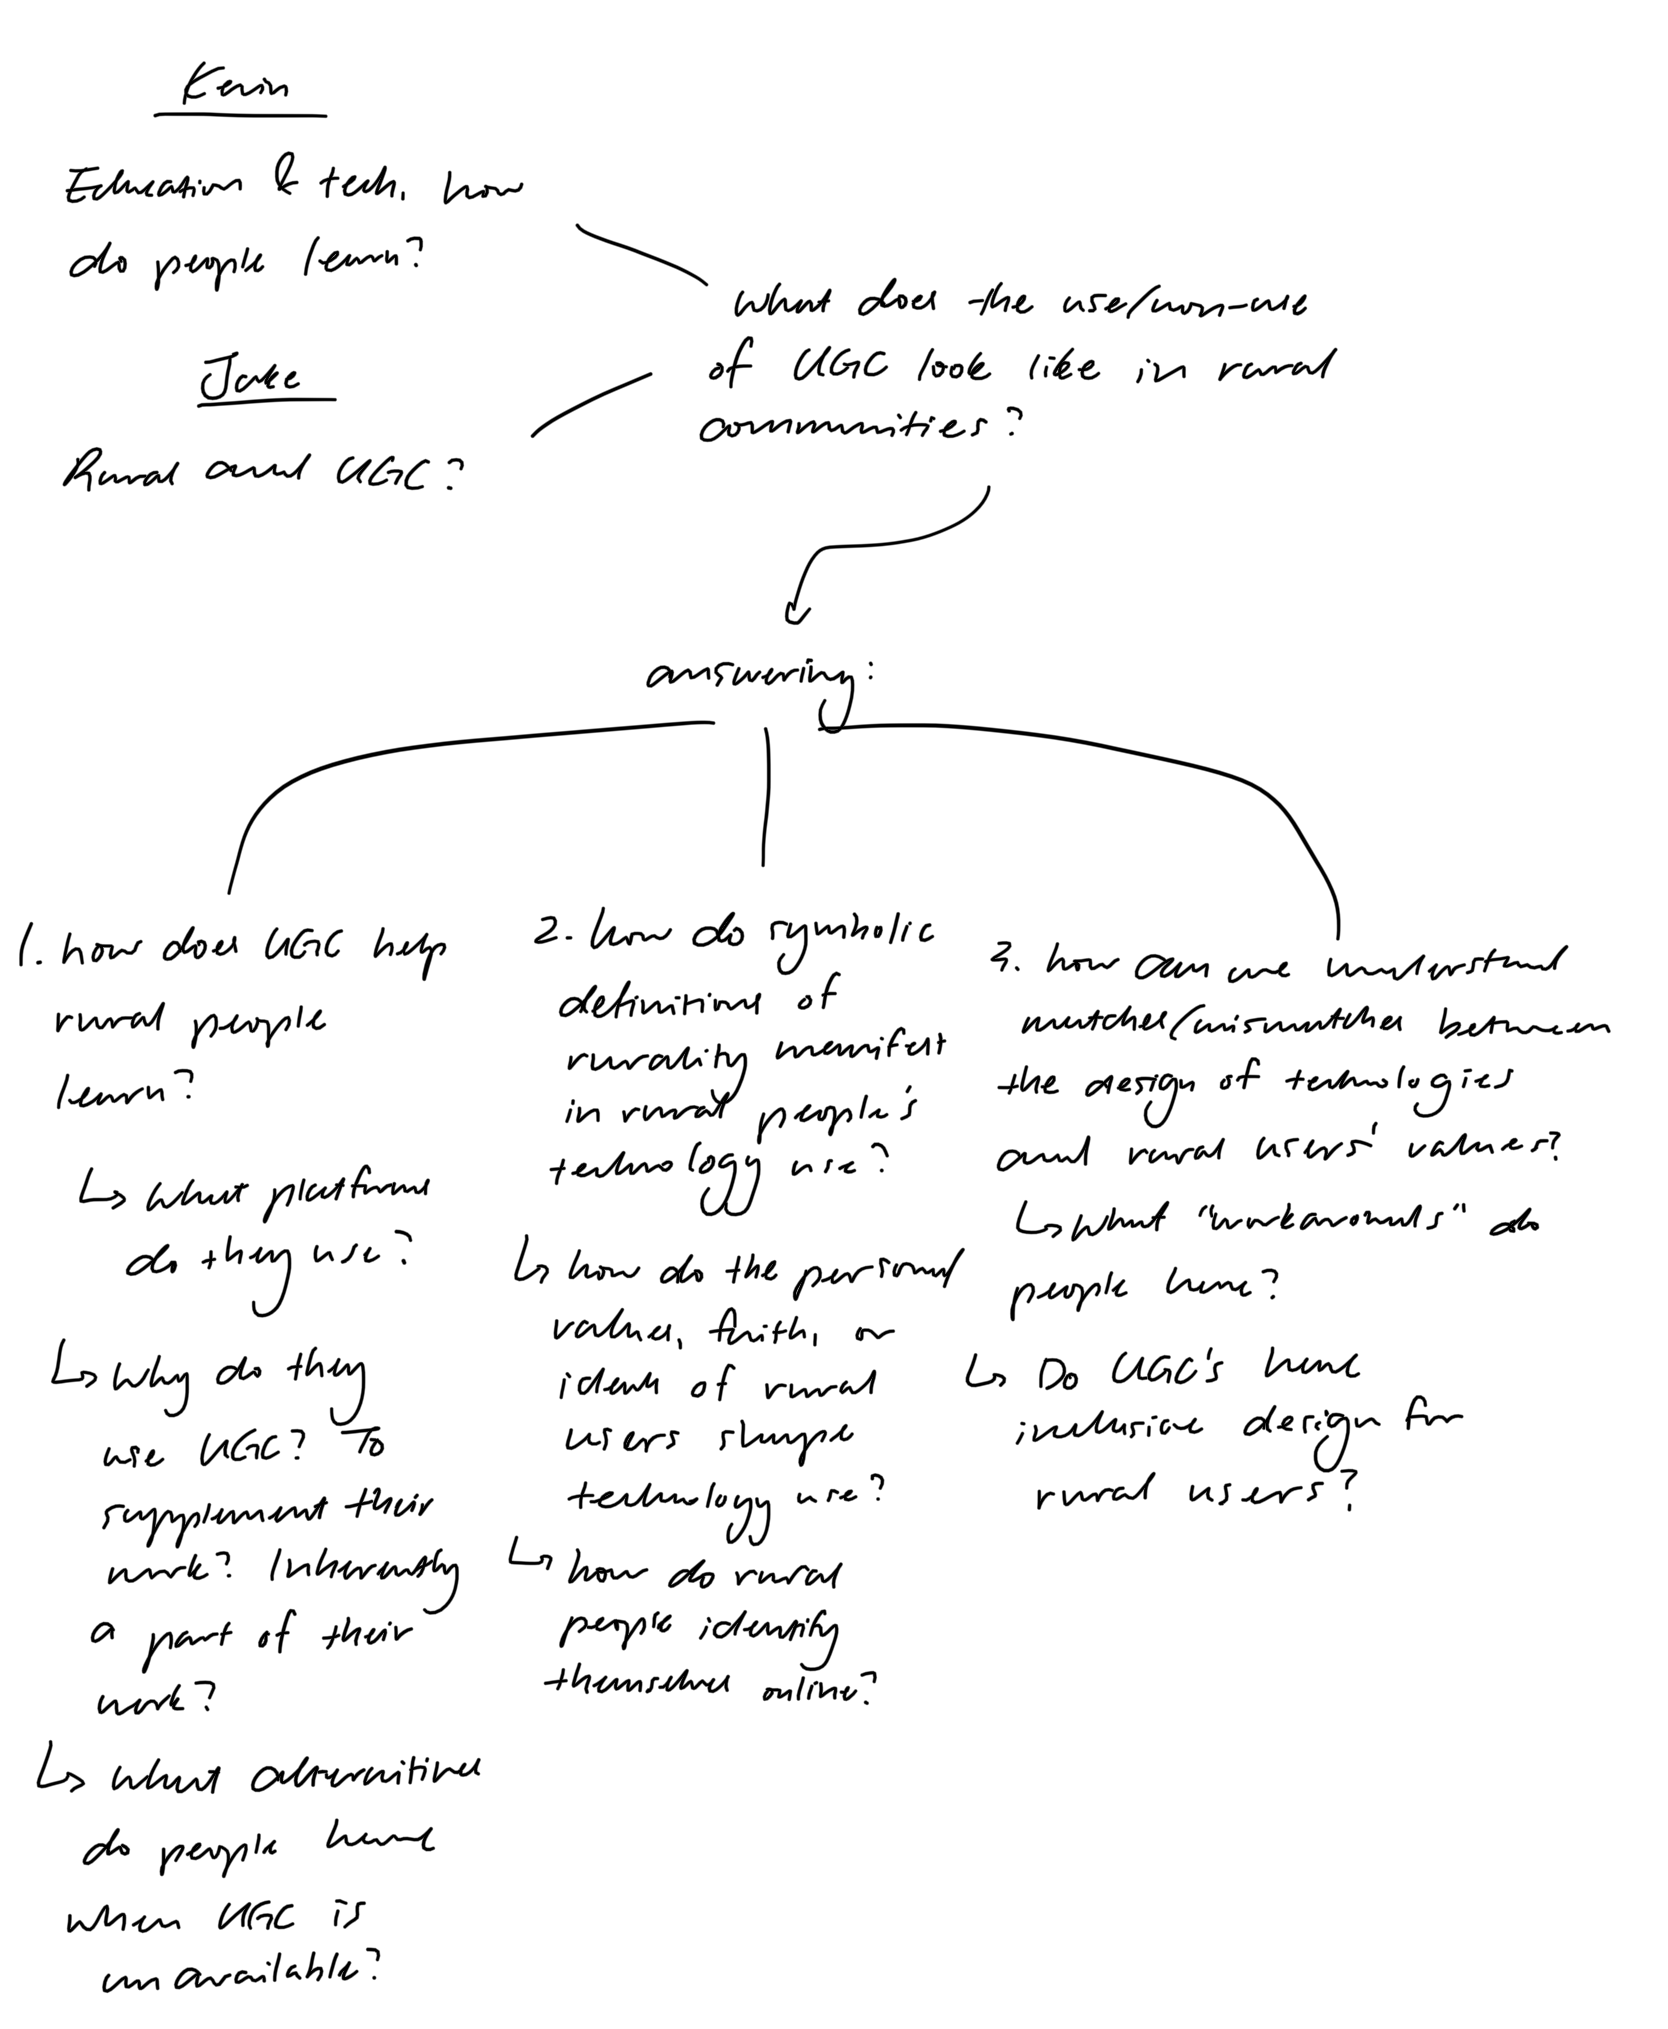 Kevin
Education & tech, how
do people learn?
Jake
Rural and UGC?
what does the use/non-use
of UGC look like in rural
communities?
answering:
1. how does UGC help
rural people
learn?
↳ what platforms
do they use?
↳ why do they
use UGC? To
supplement their
work? Inherently
a part of their
work?
↳ what alternitives
do people have
when UGC is
unavailable?
2. how do symbolic
definitions of
rurality manifest
in rural people's
technology use?
↳ how do the personal
values, faith, or
ideas of rural
users shape
technology use?
↳ how do rural
people identify
themselves online?
3. how can we understand
matches/mismatches between
the design of technologies
and rural users' values?
↳ what "workarounds" do
people have?
↳ Do UGC's have
inclusive design for
rural users?